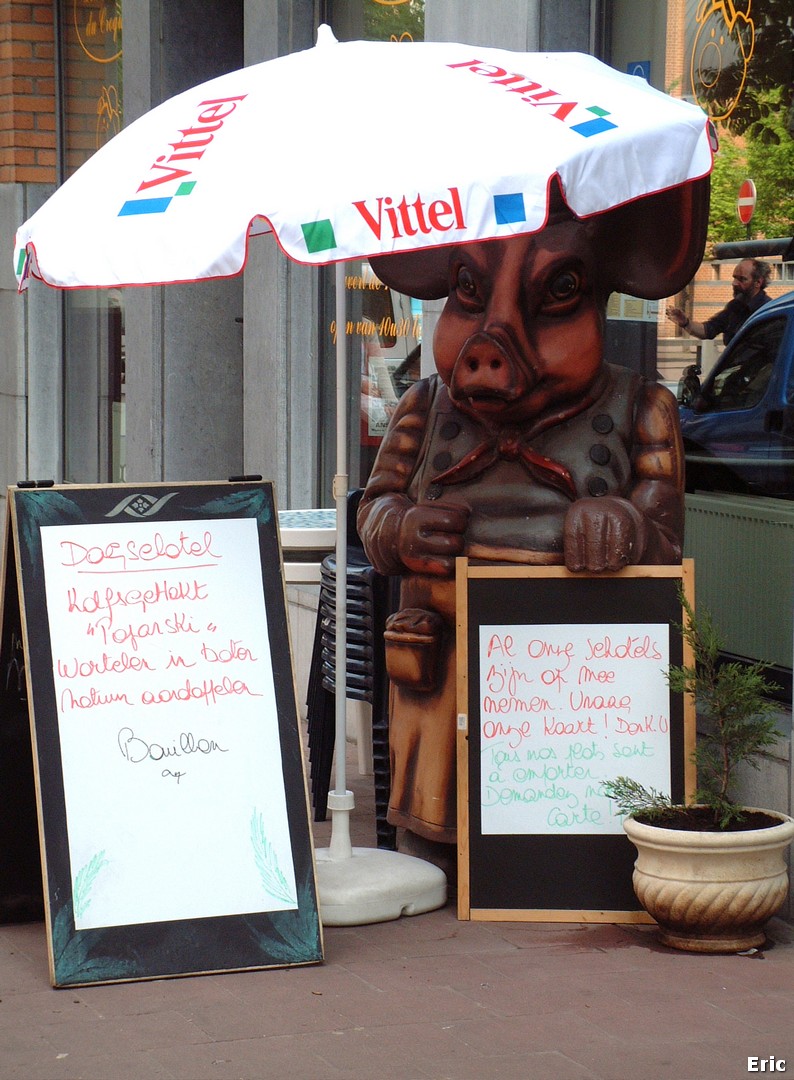 du Croqu
Vittel
Vittel
Vittel
open van 10u30
Dagschotel
Kalfsgehakt
"Pojarski"
Wortelen in boter
Natuur aardappelen
Bouillon
Al onze schotels
zijn op mee
nemen. Vraag
onze kaart! Dank U
Tous nos plats sont
à emporter.
Demandez no
carte!
Eric